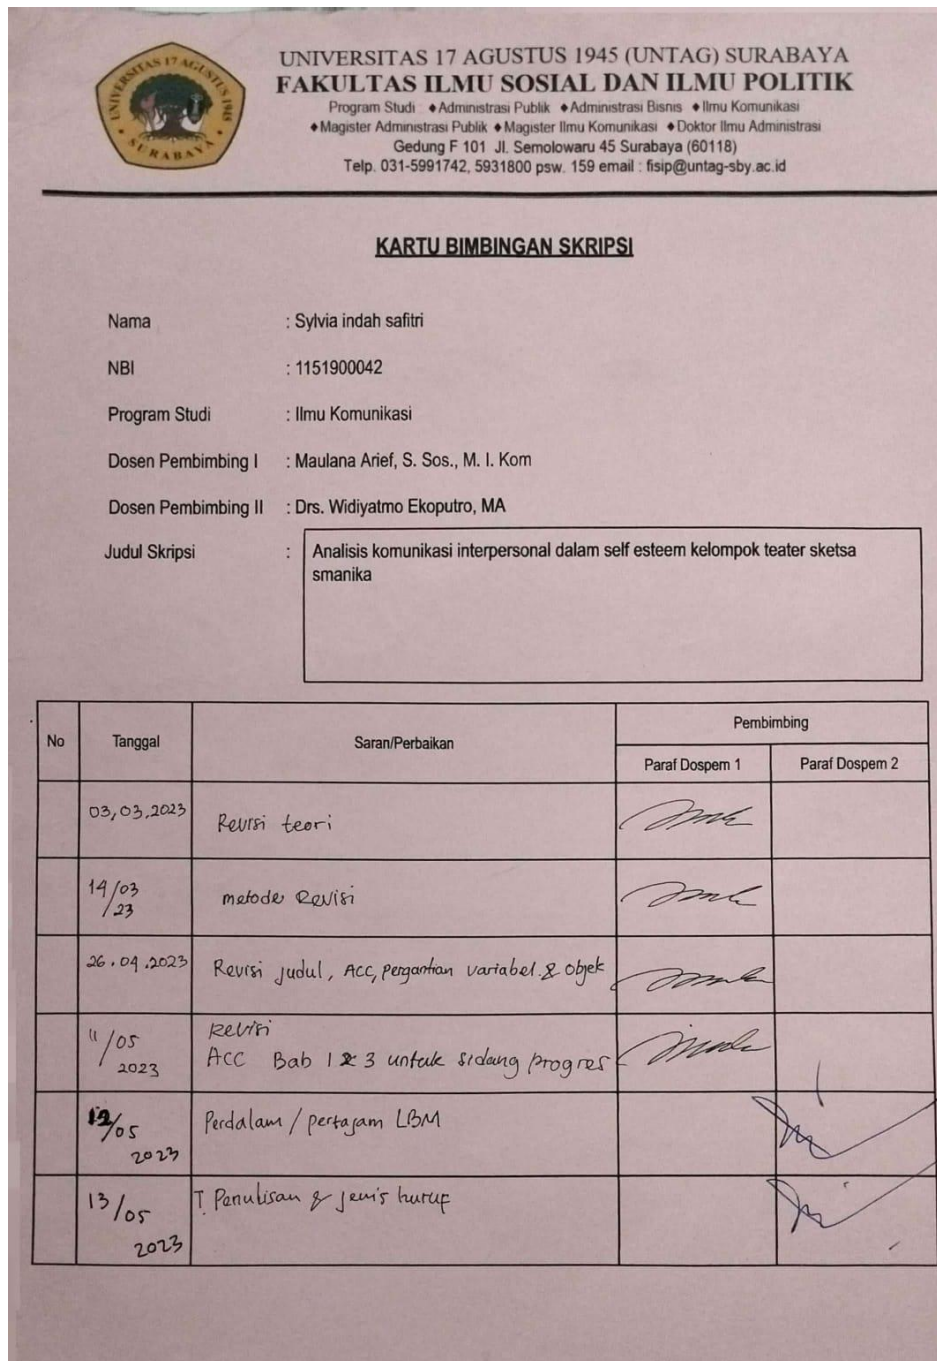 UNIVERSITAS 17 AGUSTUS 1945
SURABAYA
UNIVERSITAS 17 AGUSTUS 1945 (UNTAG) SURABAYA
FAKULTAS ILMU SOSIAL DAN ILMU POLITIK
Program Studi ♦Administrasi Publik ♦Administrasi Bisnis ♦Ilmu Komunikasi
♦Magister Administrasi Publik ♦Magister Ilmu Komunikasi ♦Doktor Ilmu Administrasi
Gedung F 101 Jl. Semolowaru 45 Surabaya (60118)
Telp. 031-5991742, 5931800 psw. 159 email : fisip@untag-sby.ac.id
KARTU BIMBINGAN SKRIPSI
Nama : Sylvia indah safitri
NBI : 1151900042
Program Studi : Ilmu Komunikasi
Dosen Pembimbing I : Maulana Arief, S. Sos., M. I. Kom
Dosen Pembimbing II : Drs. Widiyatmo Ekoputro, MA
Judul Skripsi : Analisis komunikasi interpersonal dalam self esteem kelompok teater sketsa
smanika
No Tanggal Saran/Perbaikan Pembimbing
Paraf Dospem 1 Paraf Dospem 2
03,03,2023 Revisi teori
14/03
/23 metode Revisi
26.04.2023 Revisi judul, ACC, pergantian variabel & objek
Revisi
11/05
2023 ACC Bab 1 & 3 untuk sidang progres
12/05
2023 Perdalam / pertajam LBM
13/05
2023 T. Penulisan & jenis huruf